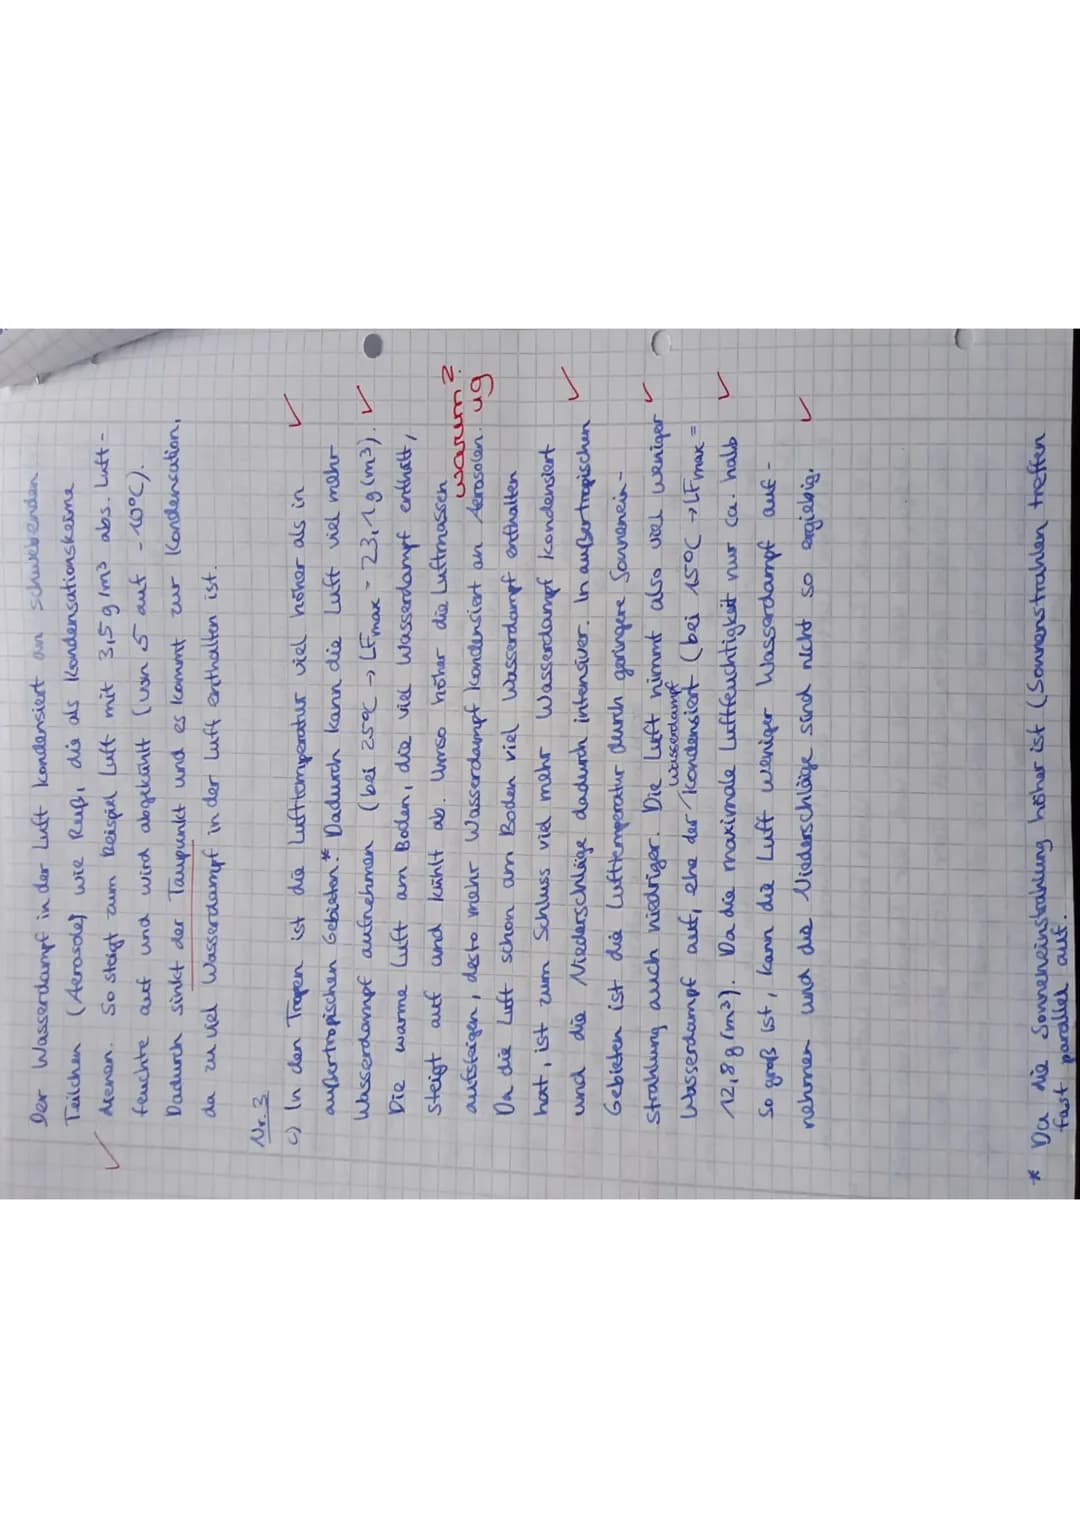 Der Wasserdampf in der Luft kondensiert an schwebenden
Teilchen (Aerosole) wie Ruß, die als Kondensationskeime
dienen. So steigt zum Beispiel Luft mit 3,5 g/m³ abs. Luft-
feuchte auf und wird abgekühlt (von 5 auf -10°C).
Dadurch sinkt der Taupunkt und es kommt zur Kondensation,
da zu viel Wasserdampf in der Luft enthalten ist.
Nr. 3
c) In den Tropen ist die Lufttemperatur viel höher als in
außertropischen Gebieten.* Dadurch kann die Luft viel mehr
Wasserdampf aufnehmen (bei 25°C → LFmax = 23,1 g/m³).
Die warme Luft am Boden, die viel Wasserdampf enthält,
steigt auf und kühlt ab. Umso höher die Luftmassen
warum?
aufsteigen, desto mehr Wasserdampf kondensiert an Aerosolen. ug
Da die Luft schon am Boden viel Wasserdampf enthalten
hat, ist zum Schluss viel mehr Wasserdampf kondensiert
und die Niederschläge dadurch intensiver. In außertropischen
Gebieten ist die Lufttemperatur durch geringere Sonnenein-
strahlung auch niedriger. Die Luft nimmt also viel weniger
Wasserdampf
Wasserdampf auf, ehe der kondensiert (bei 15°C → LFmax =
12,8 g/m³). Da die maximale Luftfeuchtigkeit nur ca. halb
so groß ist, kann die Luft weniger Wasserdampf auf-
nehmen und die Niederschläge sind nicht so ergiebig.
* Da die Sonneneinstrahlung höher ist (Sonnenstrahlen treffen
fast parallel auf.